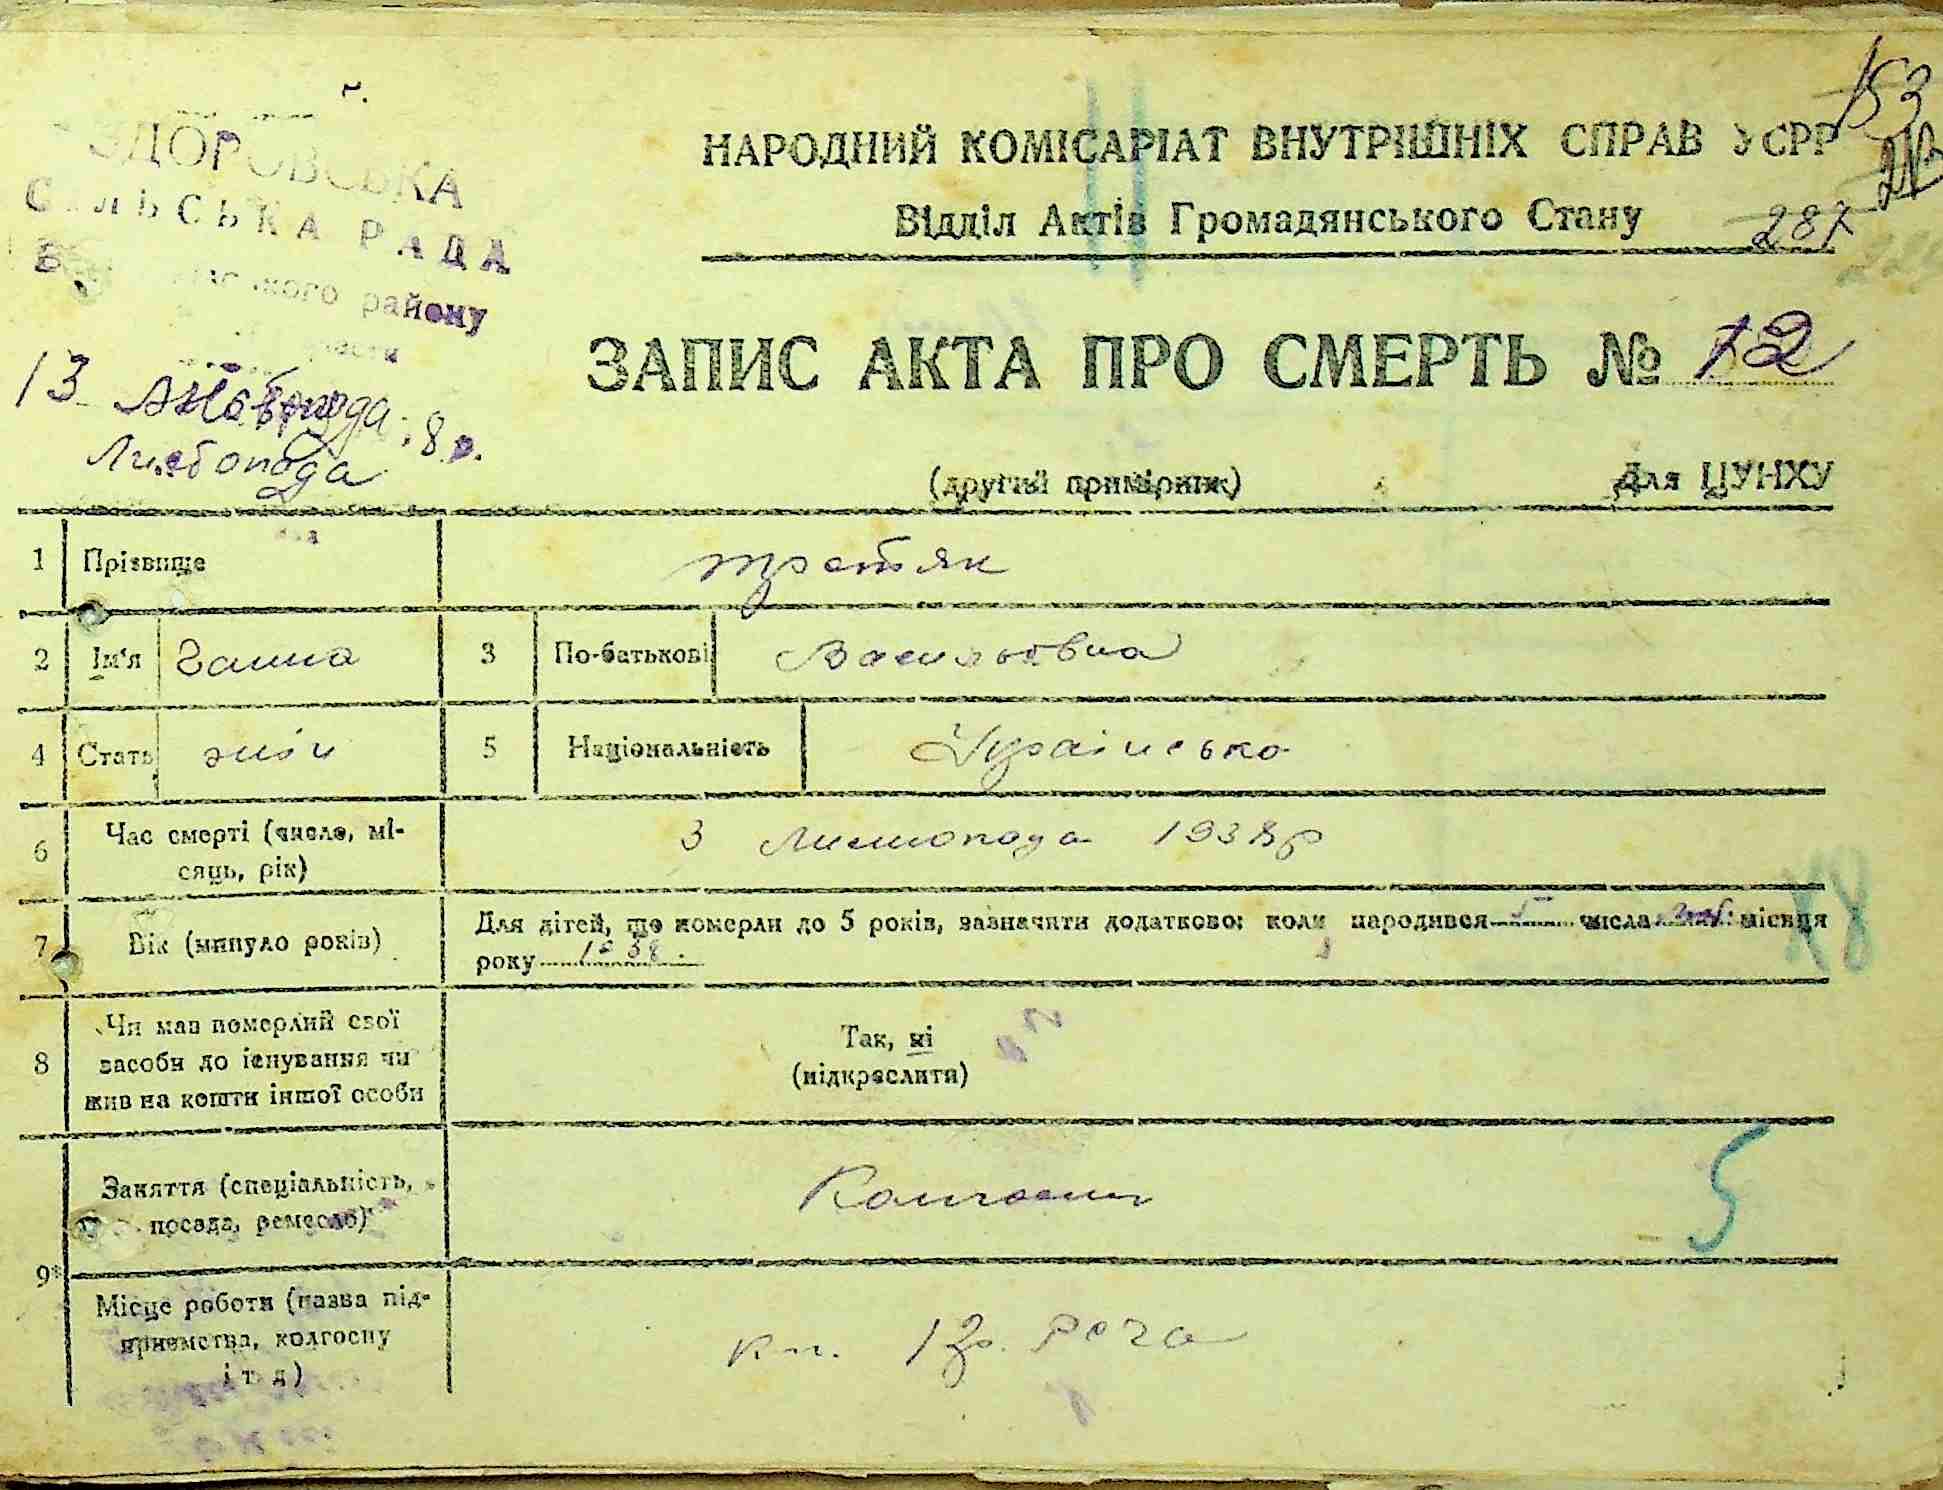 153
НАРОДНИЙ КОМІСАРІАТ ВНУТРІШНІХ СПРАВ УСРР
Відділ Актів Громадянського Стану
287
ЗДОРОВСЬКА
СІЛЬСЬКА РАДА
району
ЗАПИС АКТА ПРО СМЕРТЬ № 12
13
8 р.
Листопада
(другий примірник) Для ЦУНХУ
1 Прізвище третяк
2 Ім'я Ганна 3 По-батькові Васильовна
4 Стать жін 5 Національність Українсько
6 Час смерті (число, мі- 3 Листопада 1938р
сяць, рік)
7 Вік (минуло років) Для дітей, що померли до 5 років, зазначити додатково: коли народився 5 числа місяця
року 1938.
18
8 Чи мав померлий свої
засоби до існування чи
жив на кошти іншої особи
Так, ні
(підкреслити)
Заняття (спеціальність,
посада, ремесло)
Колгосп
5
9*
Місце роботи (назва під-
приємства, колгоспу
і т. д)